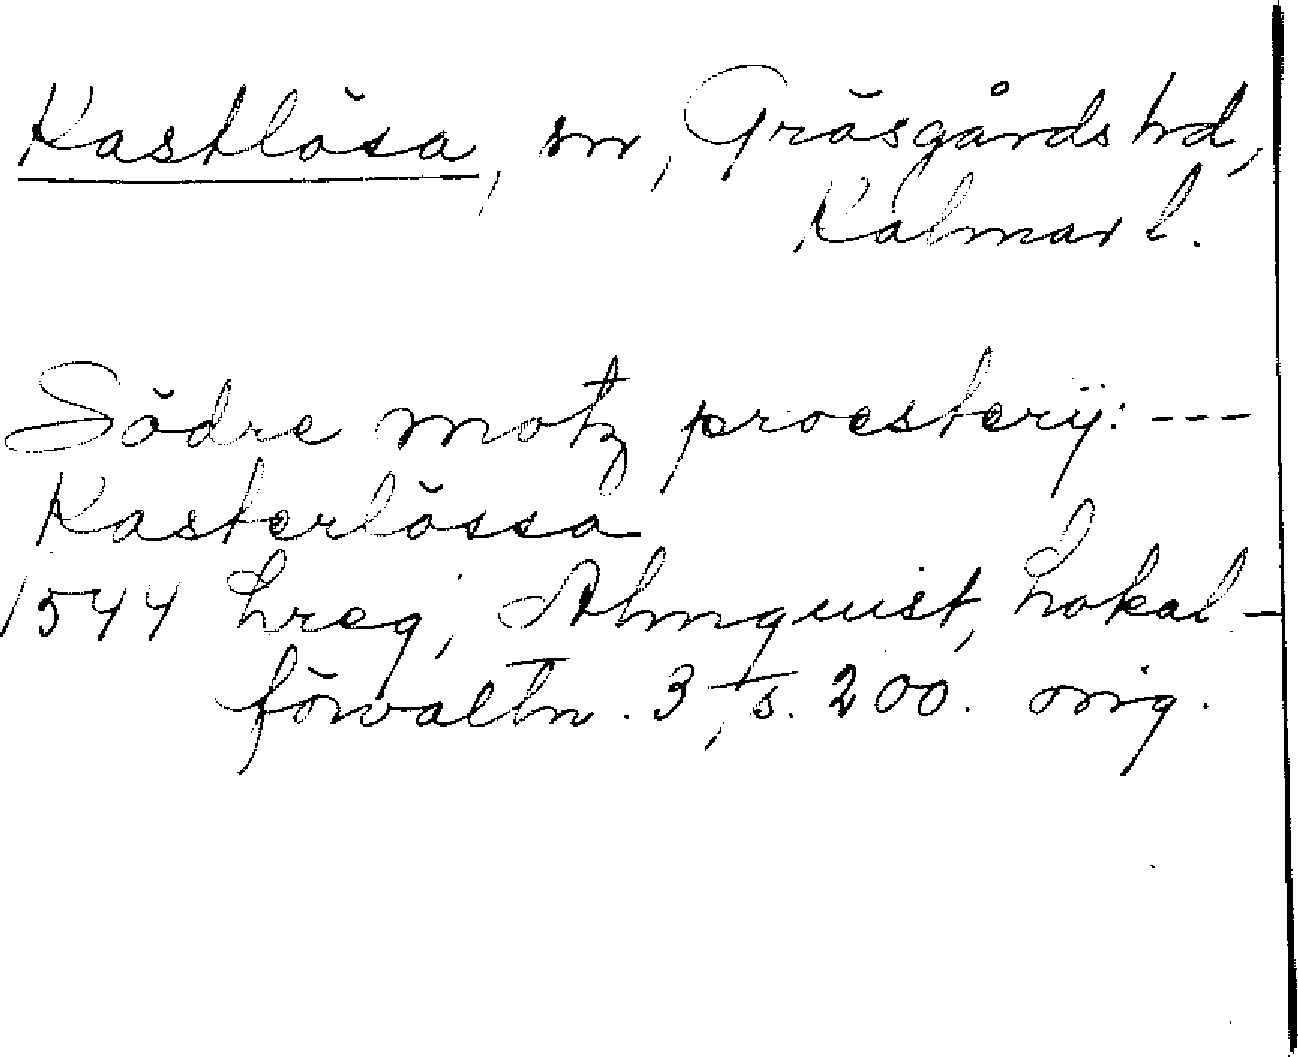 Kastlösa, sn, Gräsgårds hd,
Kalmar l.
Södre motz proesterij: ---
Kasterlössa
1544 Lreg, Almquist, Lokal-
förvaltn. 3, s. 200. orig.